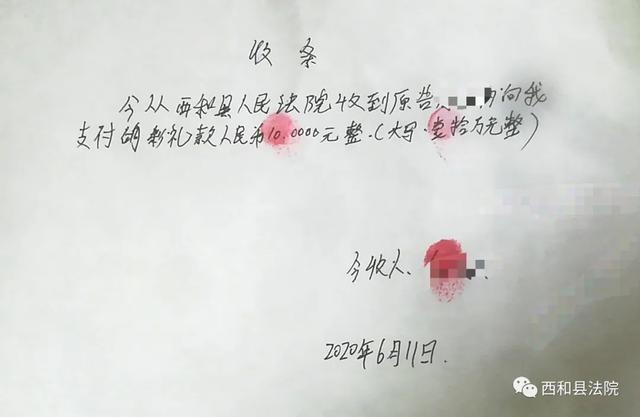 收条
今从西和县人民法院收到原告 向我
支付的彩礼款人民币10.0000元整.(大写.壹拾万元整)
今收人.
2020年6月11日.
西和县法院